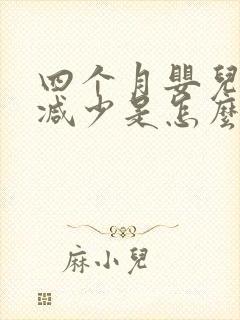 四个月嬰兒
減少是怎麼
麻小兒